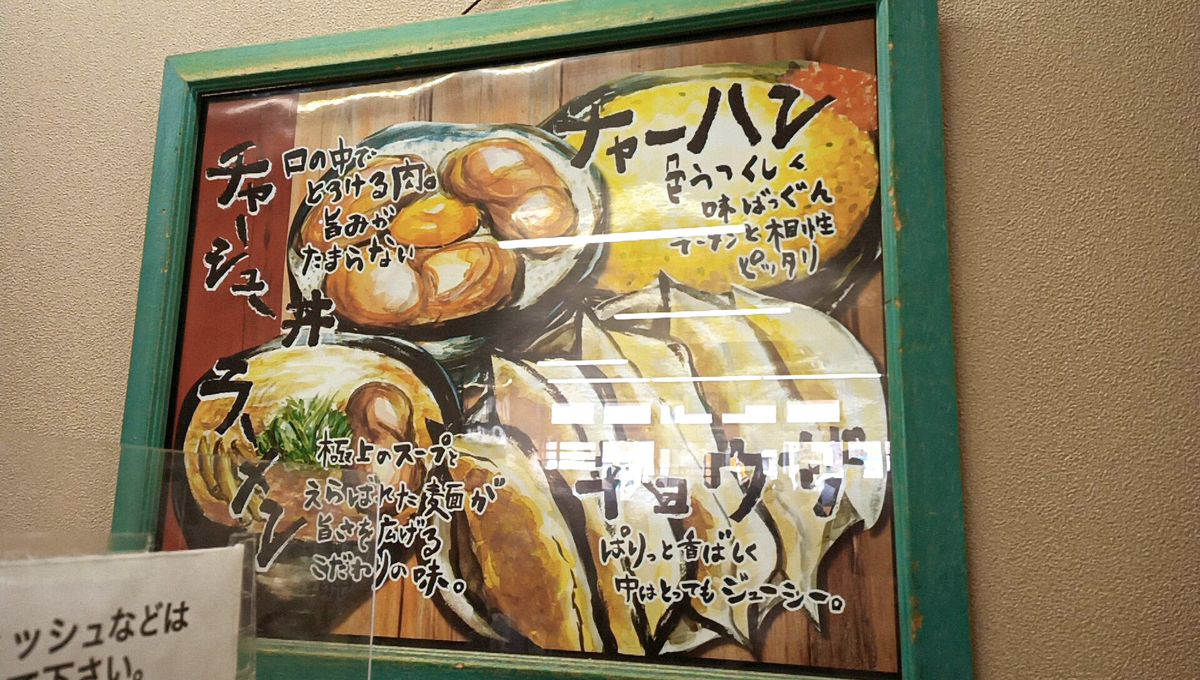 チャーシュー丼
口の中で
とろける肉。
旨みが
たまらない
チャーハン
色うつくしく
味ばつぐん
ラーメンと相性
ピッタリ
ラーメン
極上のスープと
えらばれた麺が
旨さを広げる
こだわりの味。
ギョウザ
ぱりっと香ばしく
中はとってもジューシー。
ッシュなどは
下さい。